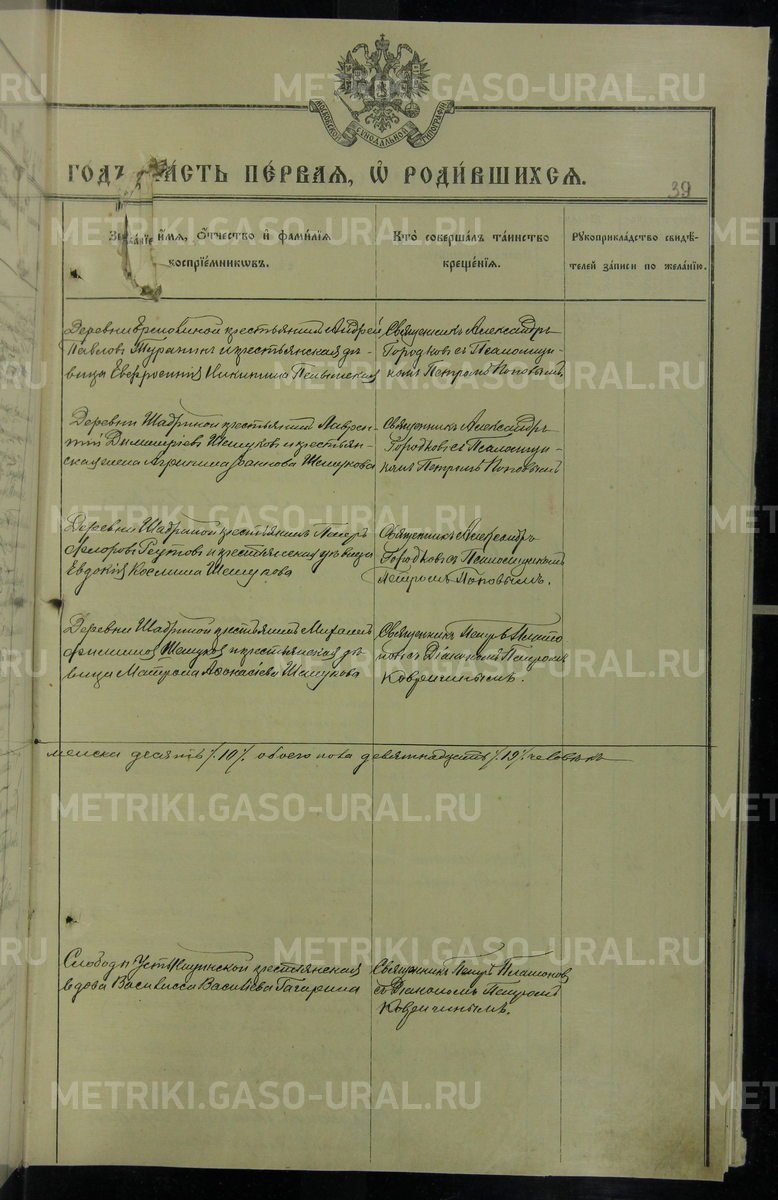 МОСКОВСКОЙ СѴНОДАЛЬНОЙ ТИПОГРАФІИ
ГОДЪ ЧА́СТЬ ПЕ́РВАЯ, Ѡ҆ РОДИ́ВШИХСѦ.
39
Зва́нїе, и҆́мѧ, ѻ҆́тчество и҆ фами́лїѧ
воспрїе́мникѡвъ.
Кто̀ соверша́лъ та́инство
креще́нїѧ.
Рꙋкоприкла́дство свидѣ́-
телей за́писи по жела́нїю.
Деревни Ермолиной крестьянинъ Андрей
Павловъ и крестьянская дѣ-
вица Евфросинія Никитина
Священникъ Александръ
Городковъ съ Псаломщи-
комъ Петромъ Поповымъ.
Деревни Шабриной крестьянинъ Лаврен-
тій Димитріевъ Шешуковъ и крестьян-
ская жена Агрипина Іоаннова Шешукова
Священникъ Александръ
Городковъ съ Псаломщи-
комъ Петромъ Поповымъ
Деревни Шабриной крестьянинъ Петръ
Реутовъ и крестьянская дѣвица
Евдокія Космина Шешукова
Священникъ Александръ
Городковъ съ Псаломщикомъ
Петромъ Поповымъ.
Деревни Шабриной крестьянинъ Михаилъ
Филиповъ Шешуковъ и крестьянская дѣ-
вица Матрона Аѳонасіева Шешукова
Священникъ Петръ Плато
новъ съ Діакономъ Петромъ
Ковригинымъ.
женска десять /10/. обоего пола девятнадцать /19/ человѣкъ
Слободы Усть Ницинской крестьянская
вдова Василисса Васильева Гагарина
Священникъ Петръ Платоновъ
съ Діакономъ Петромъ
Ковригинымъ.
METRIKI.GASO-URAL.RU